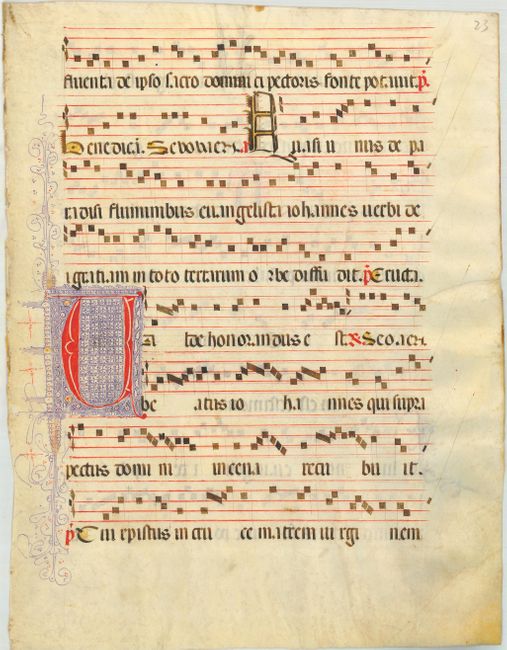 23
fluenta de ipso sacro domini ci pectoris fonte potauit. p
Benedici. Seuouaen. Quasi u nus de pa
radisi fluminibus euangelista iohannes uerbi de
i gratiam in toto terrarum o rbe diffu dit. p Eructa.
Ua lde honorandus e st. Seuaen.
be atus io ha nnes qui supra
pectus domi ni in cena recu bu it
p Cui xpistus in cru ce matrem ui rgi nem